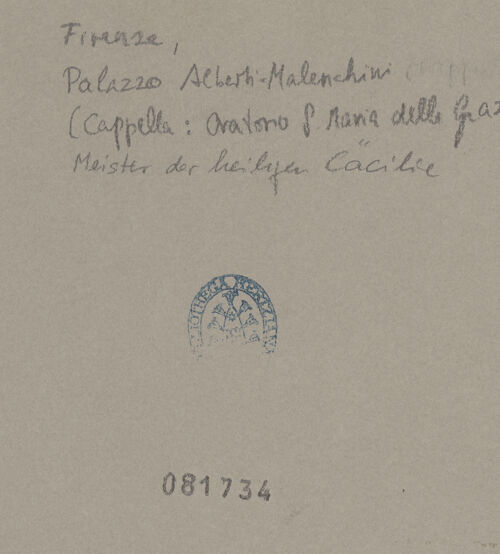 Firenze,
Palazzo Alberti-Malenchini
(Cappella: Oratorio S. Maria delle Graz
Meister der heiligen Cäcilie
BIBLIOTHECA HERTZIANA
081734